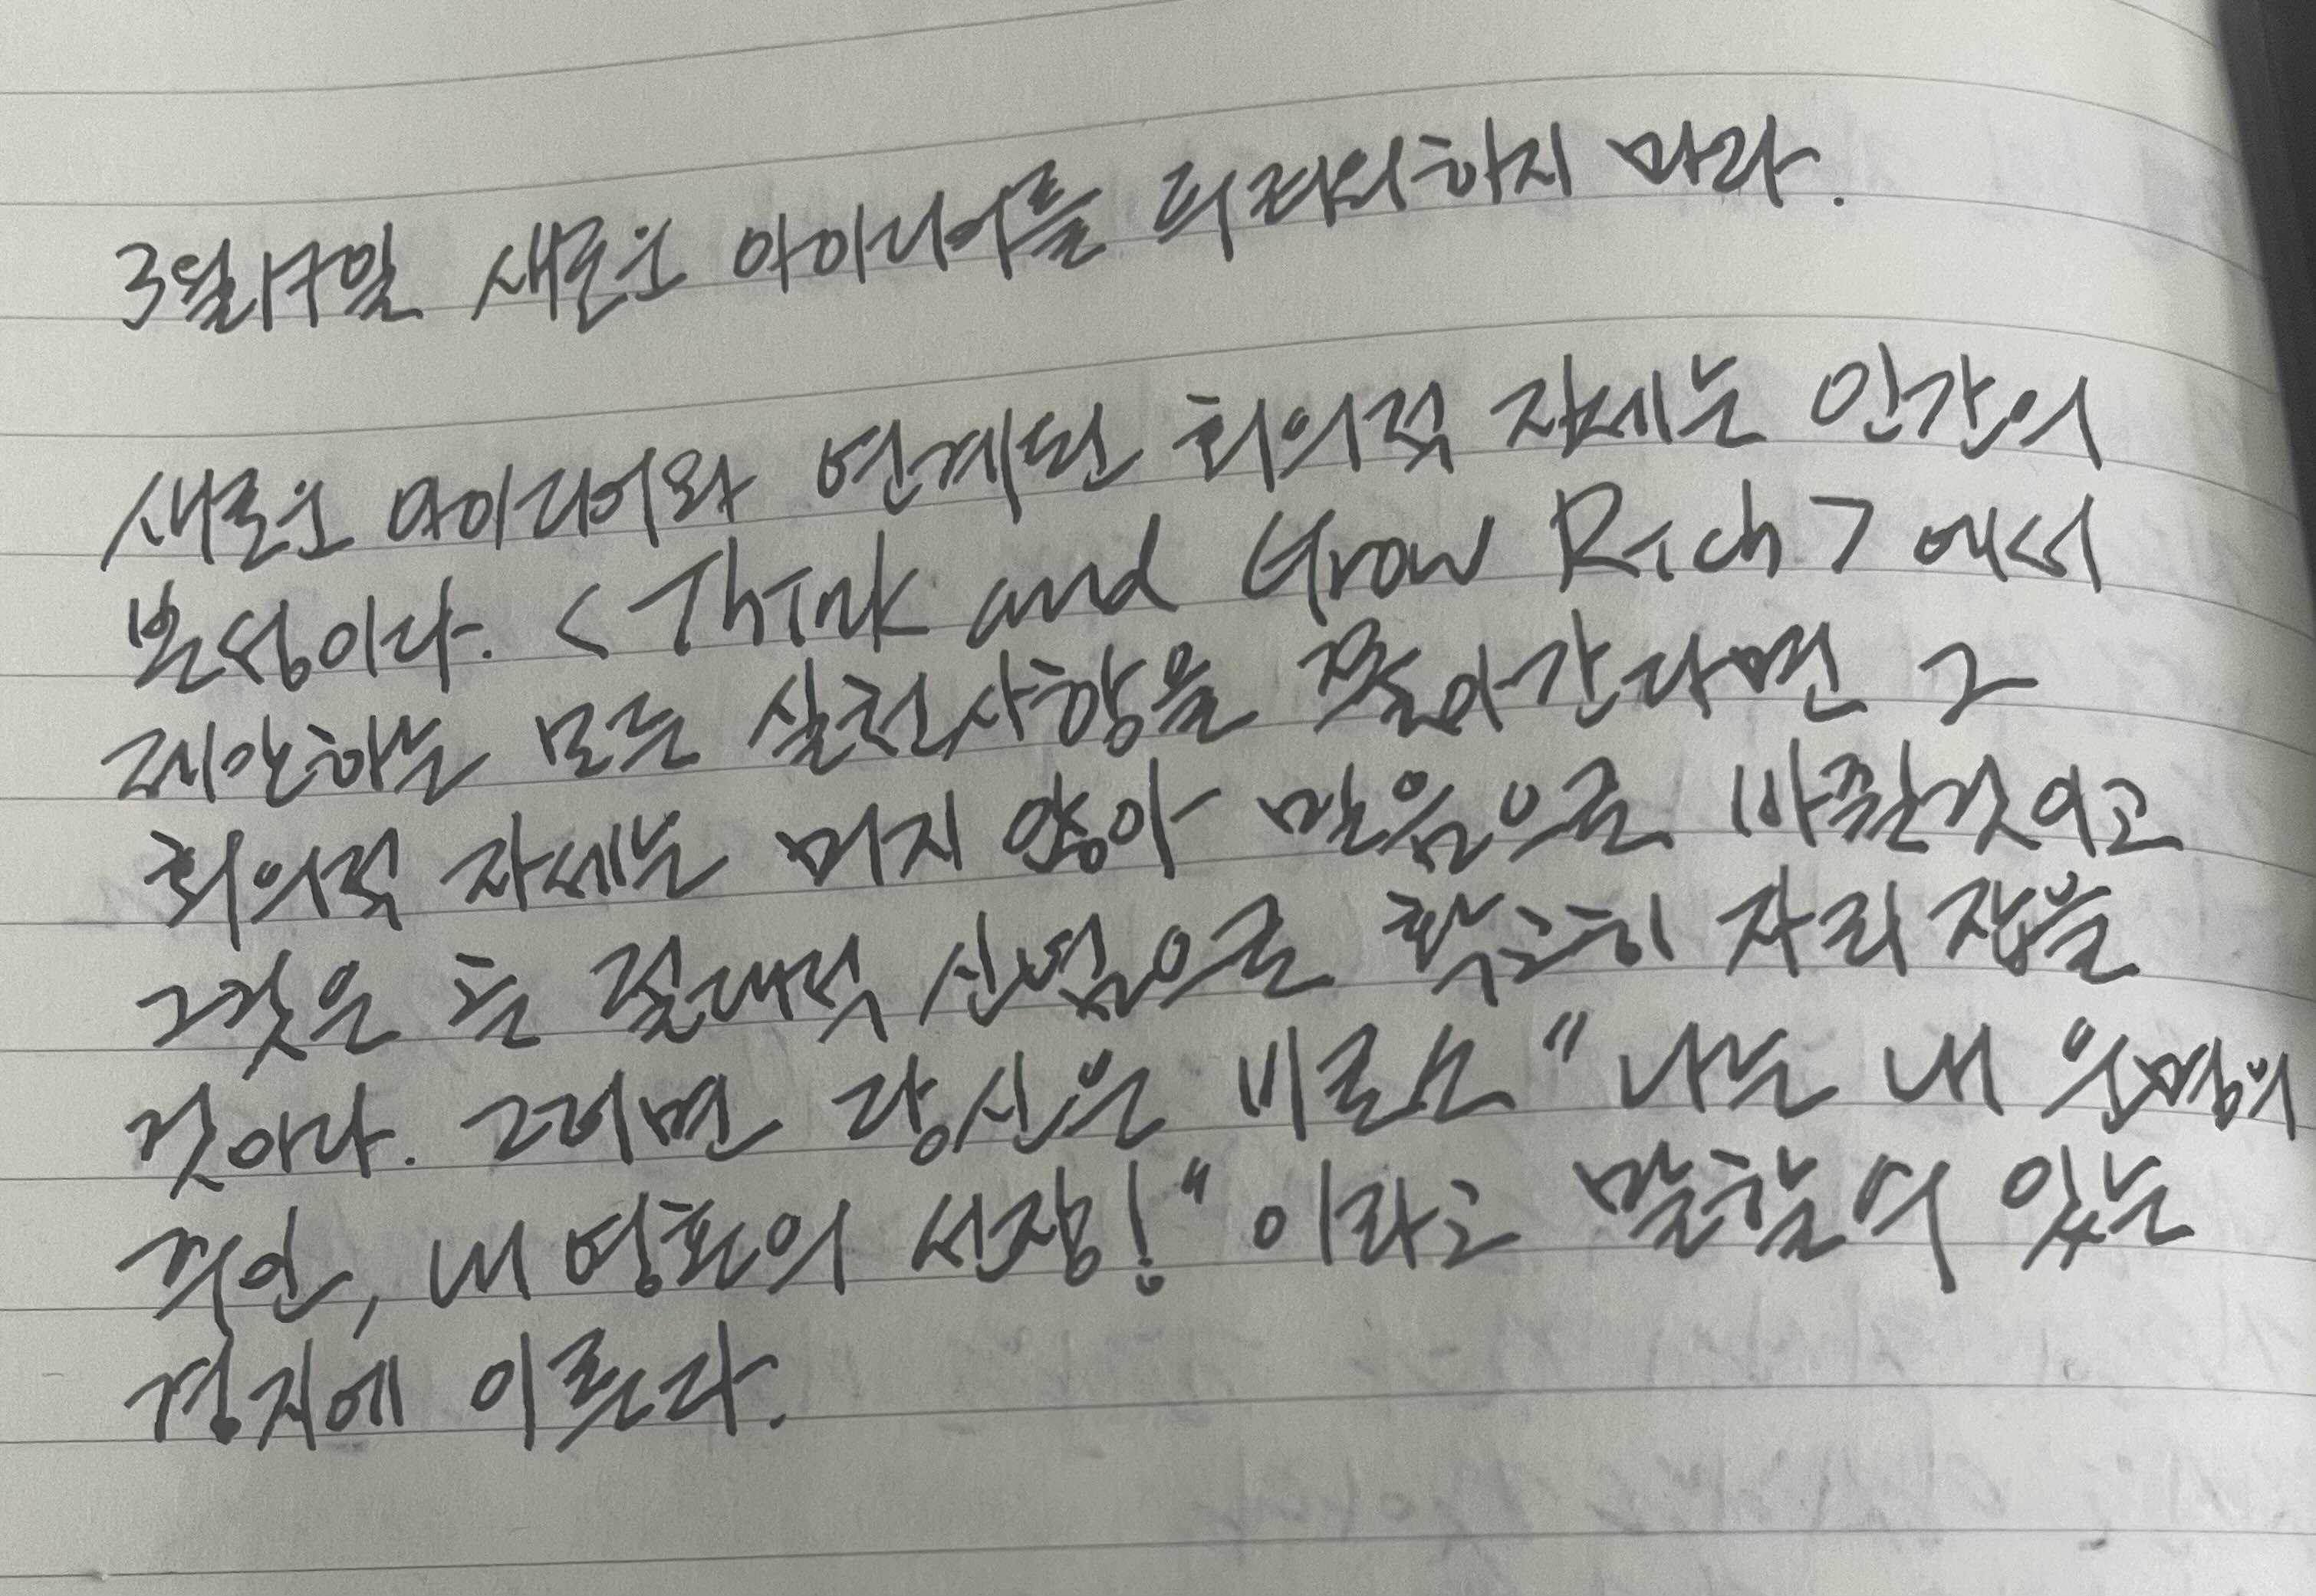 3월17일 새로운 아이디어를 두려워하지 마라.
새로운 아이디어와 연계된 회의적 자세는 인간의
본성이다. <Think and Grow Rich>에서
제안하는 모든 실천사항을 쫓아간다면 그
회의적 자세는 머지 않아 믿음으로 바뀔것이고
그것은 또 절대적 신념으로 확고히 자리 잡을
것이다. 그러면 당신은 비로소 "나는 내 운명의
주인, 내 영혼의 선장!" 이라고 말할 수 있는
경지에 이른다.